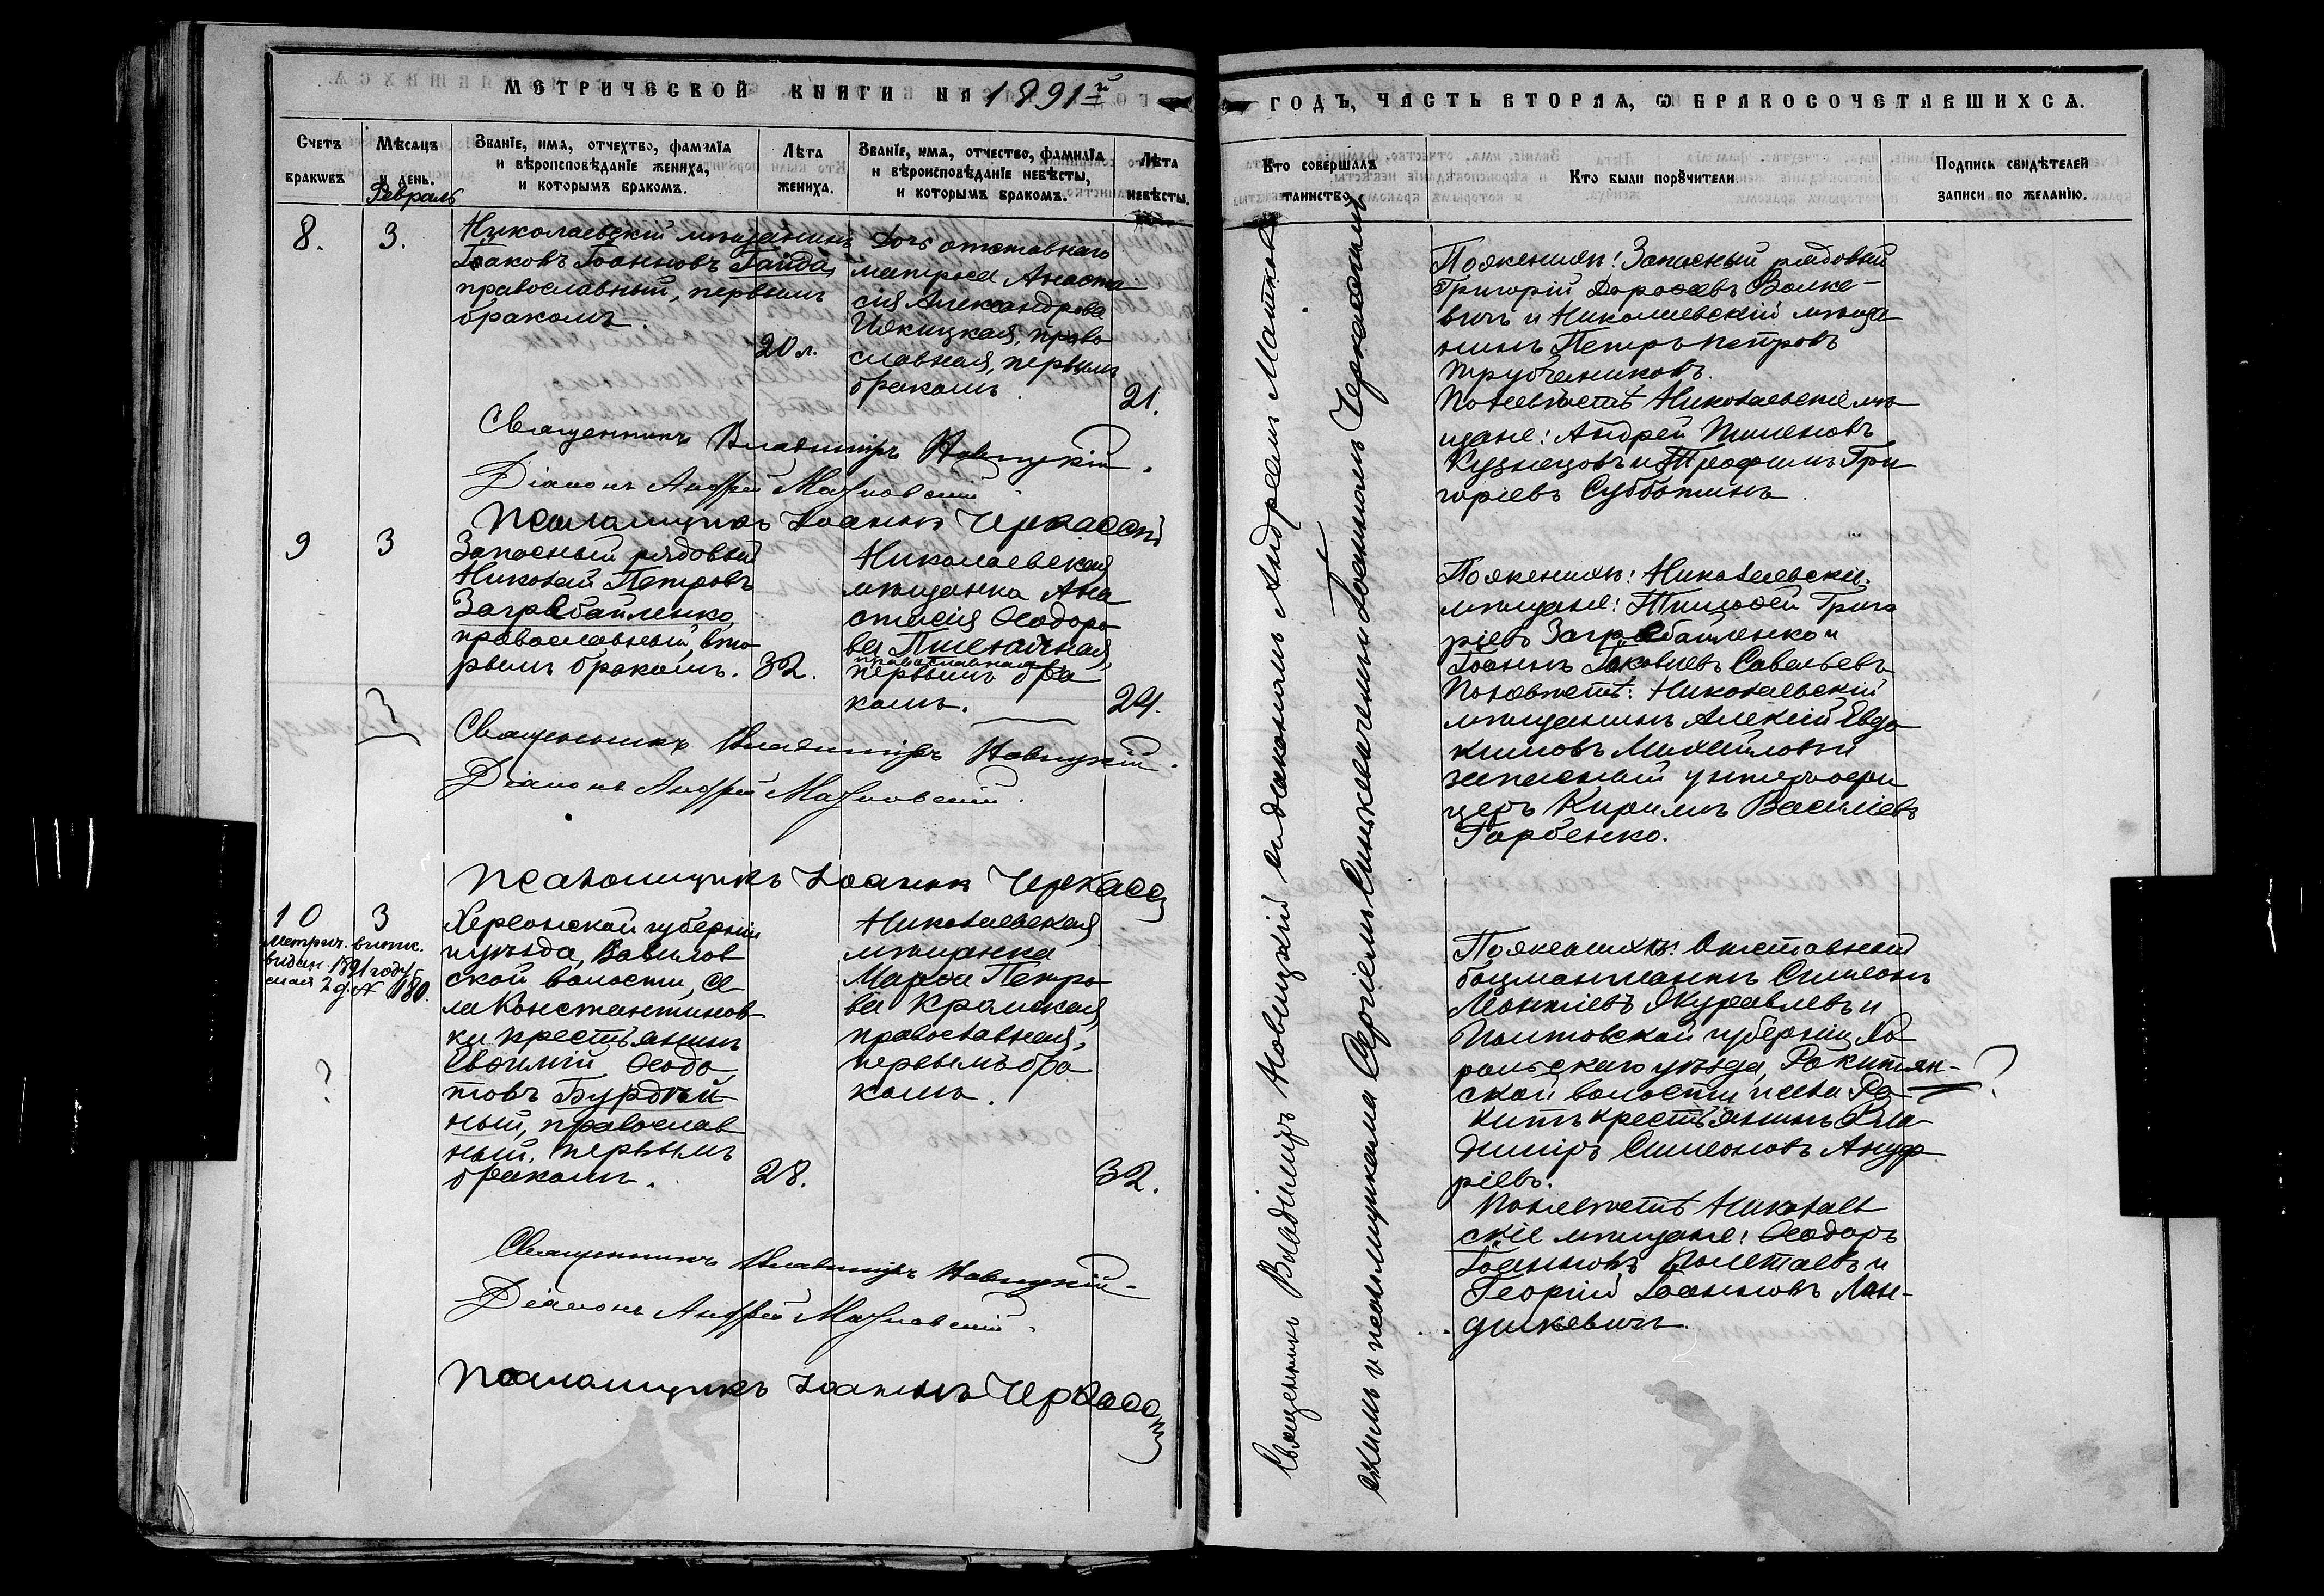 МЕТРИЧЕСКОЙ КНИГИ НА 1891й
ГОДЪ, ЧАСТЬ ВТОРАЯ, Ѡ БРАКОСОЧЕТАВШИХСѦ.
Счетъ браковъ
Мѣсяцъ и день.
Февраль
Званіе, имя, отчехтво, фамилія
и вѣроисповѣданіе жениха,
и которымъ бракомъ.
Лѣта
жениха.
Званіе, имя, отчество, фамилія
и вѣроисповѣданіе невѣсты,
и которымъ бракомъ.
Лѣта
невѣсты.
Кто совершалъ
таинство
Кто были порꙋчители
Подпись свидѣтелей
записи по желанію.
8.
3.
Николаевскій мѣщанинъ
Іаковъ Іоанновъ Гайда,
православный, первымъ
бракомъ.
20 л.
Дочь отставнаго
матроса Анаста
сія Александрова
православная, первымъ
бракомъ.
21.
Священникъ Владиміръ Новицкій.
Діаконъ Андрей
Псаломщикъ Іоаннъ Черкасскій
9
3
Запасный рядовый
Николай Петровъ
Загребайленко
православный, вто
рымъ бракомъ.
32.
Николаевская
мѣщанка Ана
стасія Ѳеодоро
ва Пшеничная,
православная
первымъ бра
комъ.
24.
Священникъ Владиміръ Новицкій.
Діаконъ Андрей
Псаломщикъ Іоаннъ Черкасс
10
3
Метрич. выпис.
выдан. 1891 году
мая 2 д. № 180.
?
Херсонской губерніи
и уѣзда, Вавилов
ской волости, се
ла Константинов
ки крестьянинъ
Евѳимій Ѳеодо
товъ Бурдый
ный, православ
ный, первымъ
бракомъ.
28.
Николаевская
мѣщанка
Марѳа Петро
ва Крамская,
православная,
первымъ бра
комъ.
32.
Священникъ Владиміръ Новицкій
Діаконъ Андрей
Псаломщикъ Іоаннъ Черкасс
Священникъ Владиміръ Новицкій съ діакономъ Андреемъ
скимъ и псаломщиками Сергіемъ Синкевичемъ и Іоанномъ Черкасскимъ
По женихѣ: Запасный рядовый
Григорій Дороѳеевъ Волке-
вичъ и Николаевскій мѣща
нинъ Петръ Петровъ
Трубчениковъ.
По невѣстѣ Николаевскіе мѣ
щане: Андрей Пименовъ
Кузнецовъ и Трофимъ Гри
горіевъ Субботинъ
По женихѣ: Николаевскіе
мѣщане: Тимоѳей Григо
ріевъ Загребайленко и
Іоаннъ Іаковлевъ Савельевъ
По невѣстѣ: Николаевскій
мѣщанинъ Алексій Евдо
кимовъ Михайловъ и
запасный унтеръ офи
церъ Кириллъ Василіевъ
Горбенко.
По женихѣ: Отставный
боцманматъ Симеонъ
Леонтіевъ Журавлевъ и
Полтовской губерніи, Хо
рольскаго уѣзда, Рокитян-
ской волости села Ро
китъ крестьянинъ Вла
диміръ Симеоновъ Ануф
ріевъ.
По невѣстѣ Николаев
скіе мѣщане: Ѳеодоръ
Іоанновъ Полетаевъ и
Георгій Іоанновъ Лан-
дшкевичъ
?